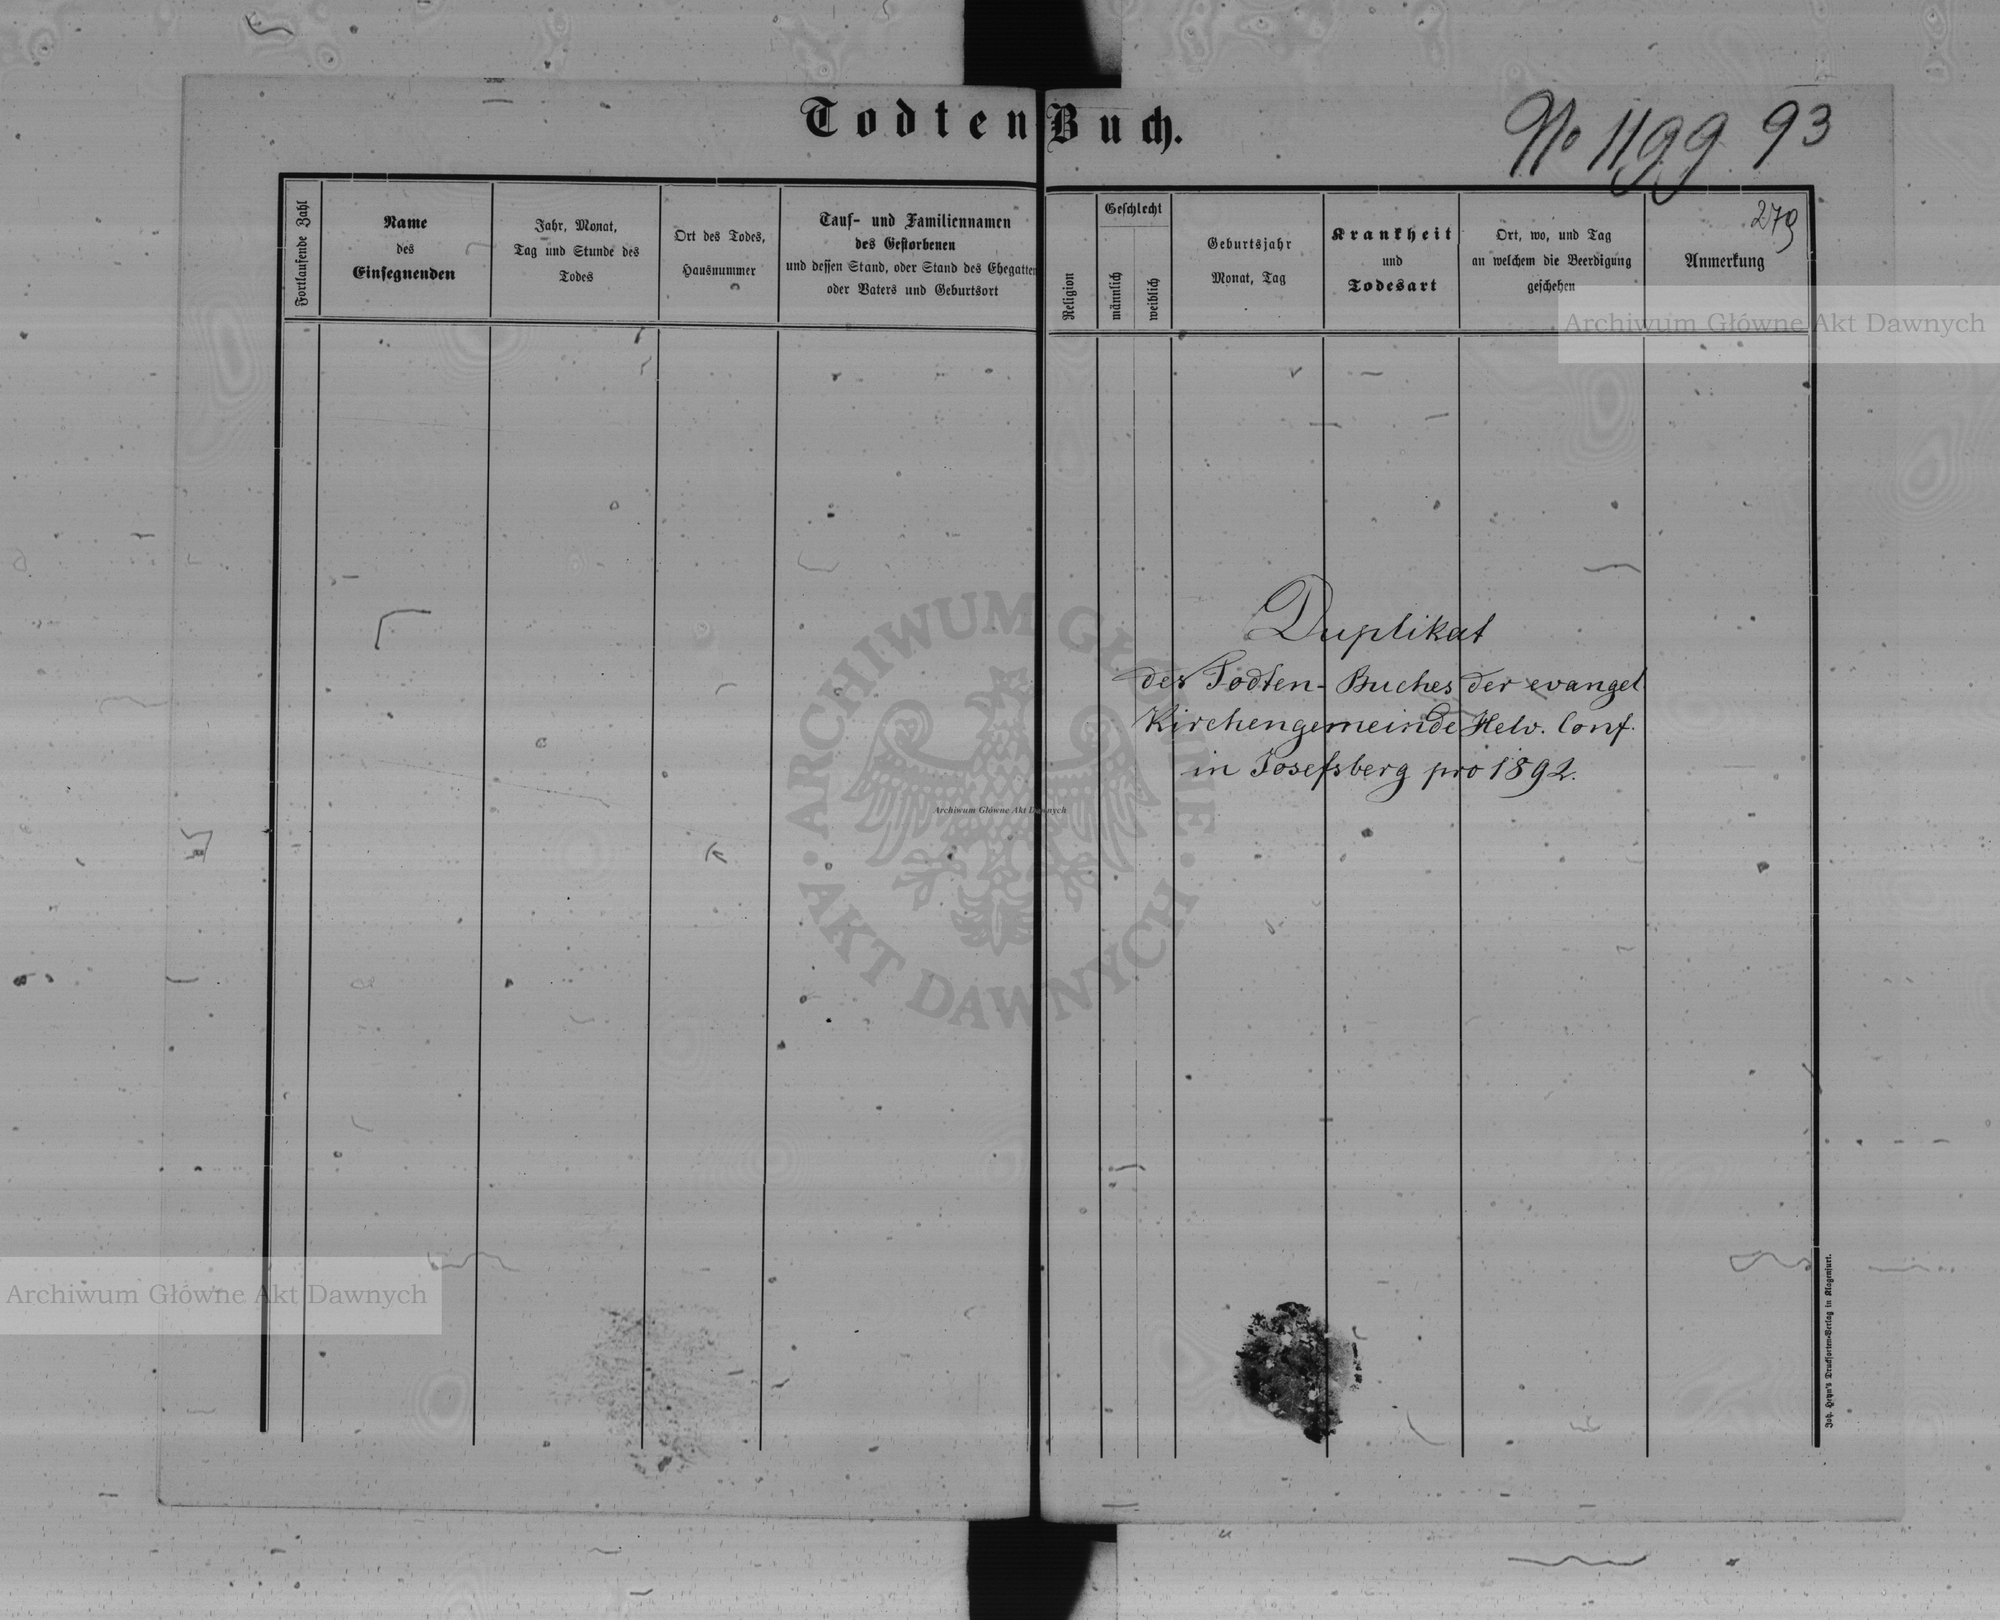 Todten Buch.
No 1199 93
279
Fortlaufende Zahl
Name
des
Einsegnenden
Jahr, Monat,
Tag und Stunde des
Todes
Ort des Todes,
Hausnummer
Tauf- und Familiennamen
des Gestorbenen
und dessen Stand, oder Stand des Ehegatten
oder Vaters und Geburtsort
Religion
Geschlecht
männlich
weiblich
Geburtsjahr
Monat, Tag
Krankheit
und
Todesart
Ort, wo, und Tag
an welchem die Beerdigung
geschehen
Anmerkung
Archiwum Główne Akt Dawnych
Duplikat
des Todten-Buches der evangel
Kirchengemeinde Helv. Conf.
in Josefsberg pro 1892.
ARCHIWUM GŁÓWNE
AKT DAWNYCH
Archiwum Główne Akt Dawnych
Archiwum Główne Akt Dawnych
Joh. Heyn's Drucksorten-Verlag in Klagenfurt.